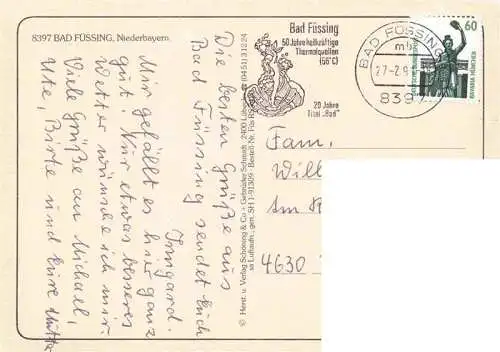 8397 BAD FÜSSING, Niederbayern
Die besten Grüße aus
Bad Füssing sendet Euch
Irmgard.
Mir gefällt es hier ganz
gut. Nur etwas besseres
Wetter wünsche ich mir.
Viele Grüße an Michael,
Ute, Birte und Eure Mutter
Herst. u. Verlag Schöning & Co + Gebrüder Schmidt · 2400 Lübeck
☎ (0451) 31224
Bad Füssing
50 Jahre heilkräftige
Thermalquellen
(56°C)
20 Jahre
Titel „Bad“
BAD FÜSSING
mb
27-2.9
839
60
DEUTSCHE BUNDESPOST
BAVARIA MÜNCHEN
Fam.
Will
Am
4630